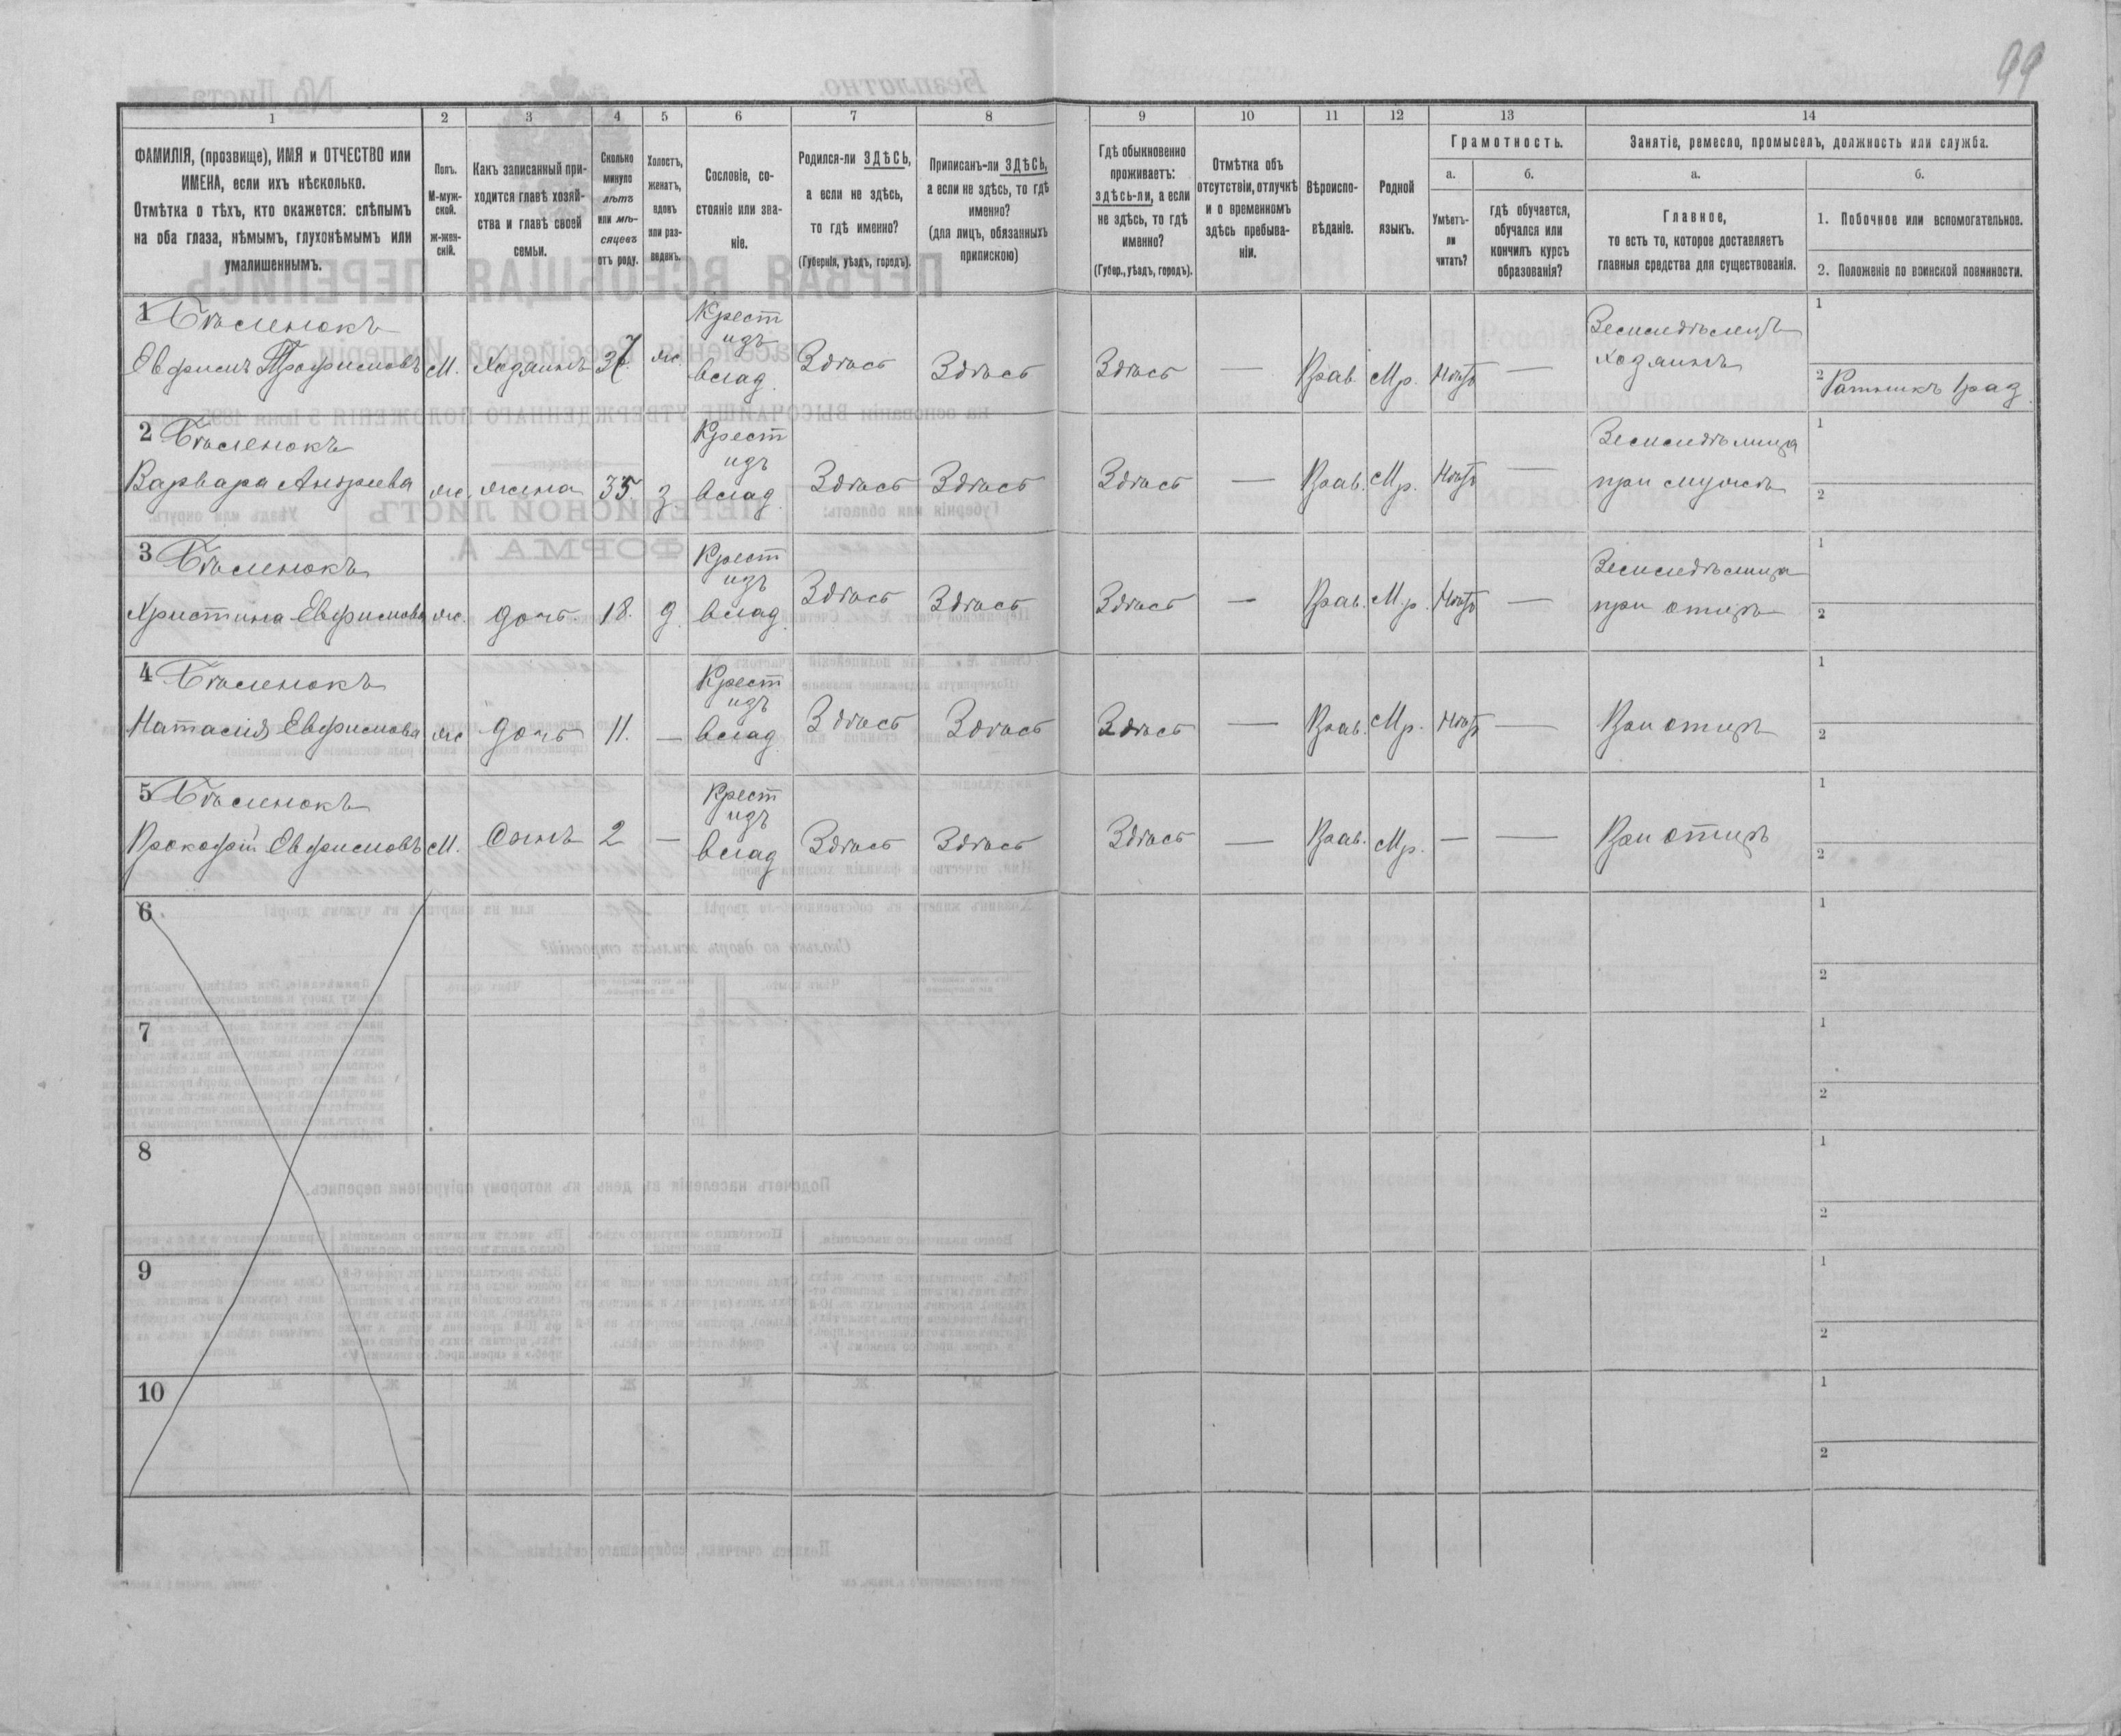 99
1 2 3 4 5 6 7 8 9 10 11 12 13 14
ФАМИЛІЯ, (прозвище), ИМЯ и ОТЧЕСТВО или
ИМЕНА, если ихъ нѣсколько.
Отмѣтка о тѣхъ, кто окажется: слѣпымъ
на оба глаза, нѣмымъ, глухонѣмымъ или
умалишеннымъ.
Полъ.
М-муж-
ской.
ж-жен-
скій.
Какъ записанный при-
ходится главѣ хозяй-
ства и главѣ своей
семьи.
Сколько
минуло
лѣтъ
или мѣ-
сяцевъ
отъ роду.
Холостъ,
женатъ,
вдовъ
или раз-
веденъ.
Сословіе, со-
стояніе или зва-
ніе.
Родился-ли ЗДѢСЬ,
а если не здѣсь,
то гдѣ именно?
(Губернія, уѣздъ, городъ).
Приписанъ-ли ЗДѢСЬ,
а если не здѣсь, то гдѣ
именно?
(для лицъ, обязанныхъ
припискою)
Гдѣ обыкновенно
проживаетъ:
здѣсь-ли, а если
не здѣсь, то гдѣ
именно?
(Губер., уѣздъ, городъ).
Отмѣтка объ
отсутствіи, отлучкѣ
и о временномъ
здѣсь пребыва-
ніи.
Вѣроиспо-
вѣданіе.
Родной
языкъ.
Грамотность.
а.
Умѣетъ-
ли
читать?
б.
гдѣ обучается,
обучался или
кончилъ курсъ
образованія?
Занятіе, ремесло, промыселъ, должность или служба.
а.
Главное,
то есть то, которое доставляетъ
главныя средства для существованія.
б.
1. Побочное или вспомогательное.
2. Положеніе по воинской повинности.
1 Бѣленокъ
Евфимъ Трофимовъ М. Хозяинъ 37 ж. Крест
изъ
влад. Здѣсь Здѣсь Здѣсь — Прав. Мр. Нѣтъ — Земледѣлецъ
хозяинъ 1
2 Ратникъ 1 раз
2 Бѣленокъ
Варвара Андреева ж. жена 35. з. Крест
изъ
влад. Здѣсь Здѣсь Здѣсь — Прав. Мр. Нѣтъ — Земледѣлица
при мужѣ 1
2
3 Бѣленокъ
Христина Евфимова ж. дочь. 18. д. Крест
изъ
влад. Здѣсь Здѣсь Здѣсь — Прав. Мр. Нѣтъ — Земледѣлица
при отцѣ 1
2
4 Бѣленокъ
Наталія Евфимова ж дочь 11. — Крест
изъ
влад. Здѣсь Здѣсь Здѣсь — Прав. Мр. Нѣтъ — При отцѣ 1
2
5 Бѣленокъ
Прокофій Евфимовъ М. Сынъ 2 — Крест
изъ
влад Здѣсь Здѣсь Здѣсь — Прав. Мр. — — При отцѣ 1
2
6 1
2
7 1
2
8 1
2
9 1
2
10 1
2